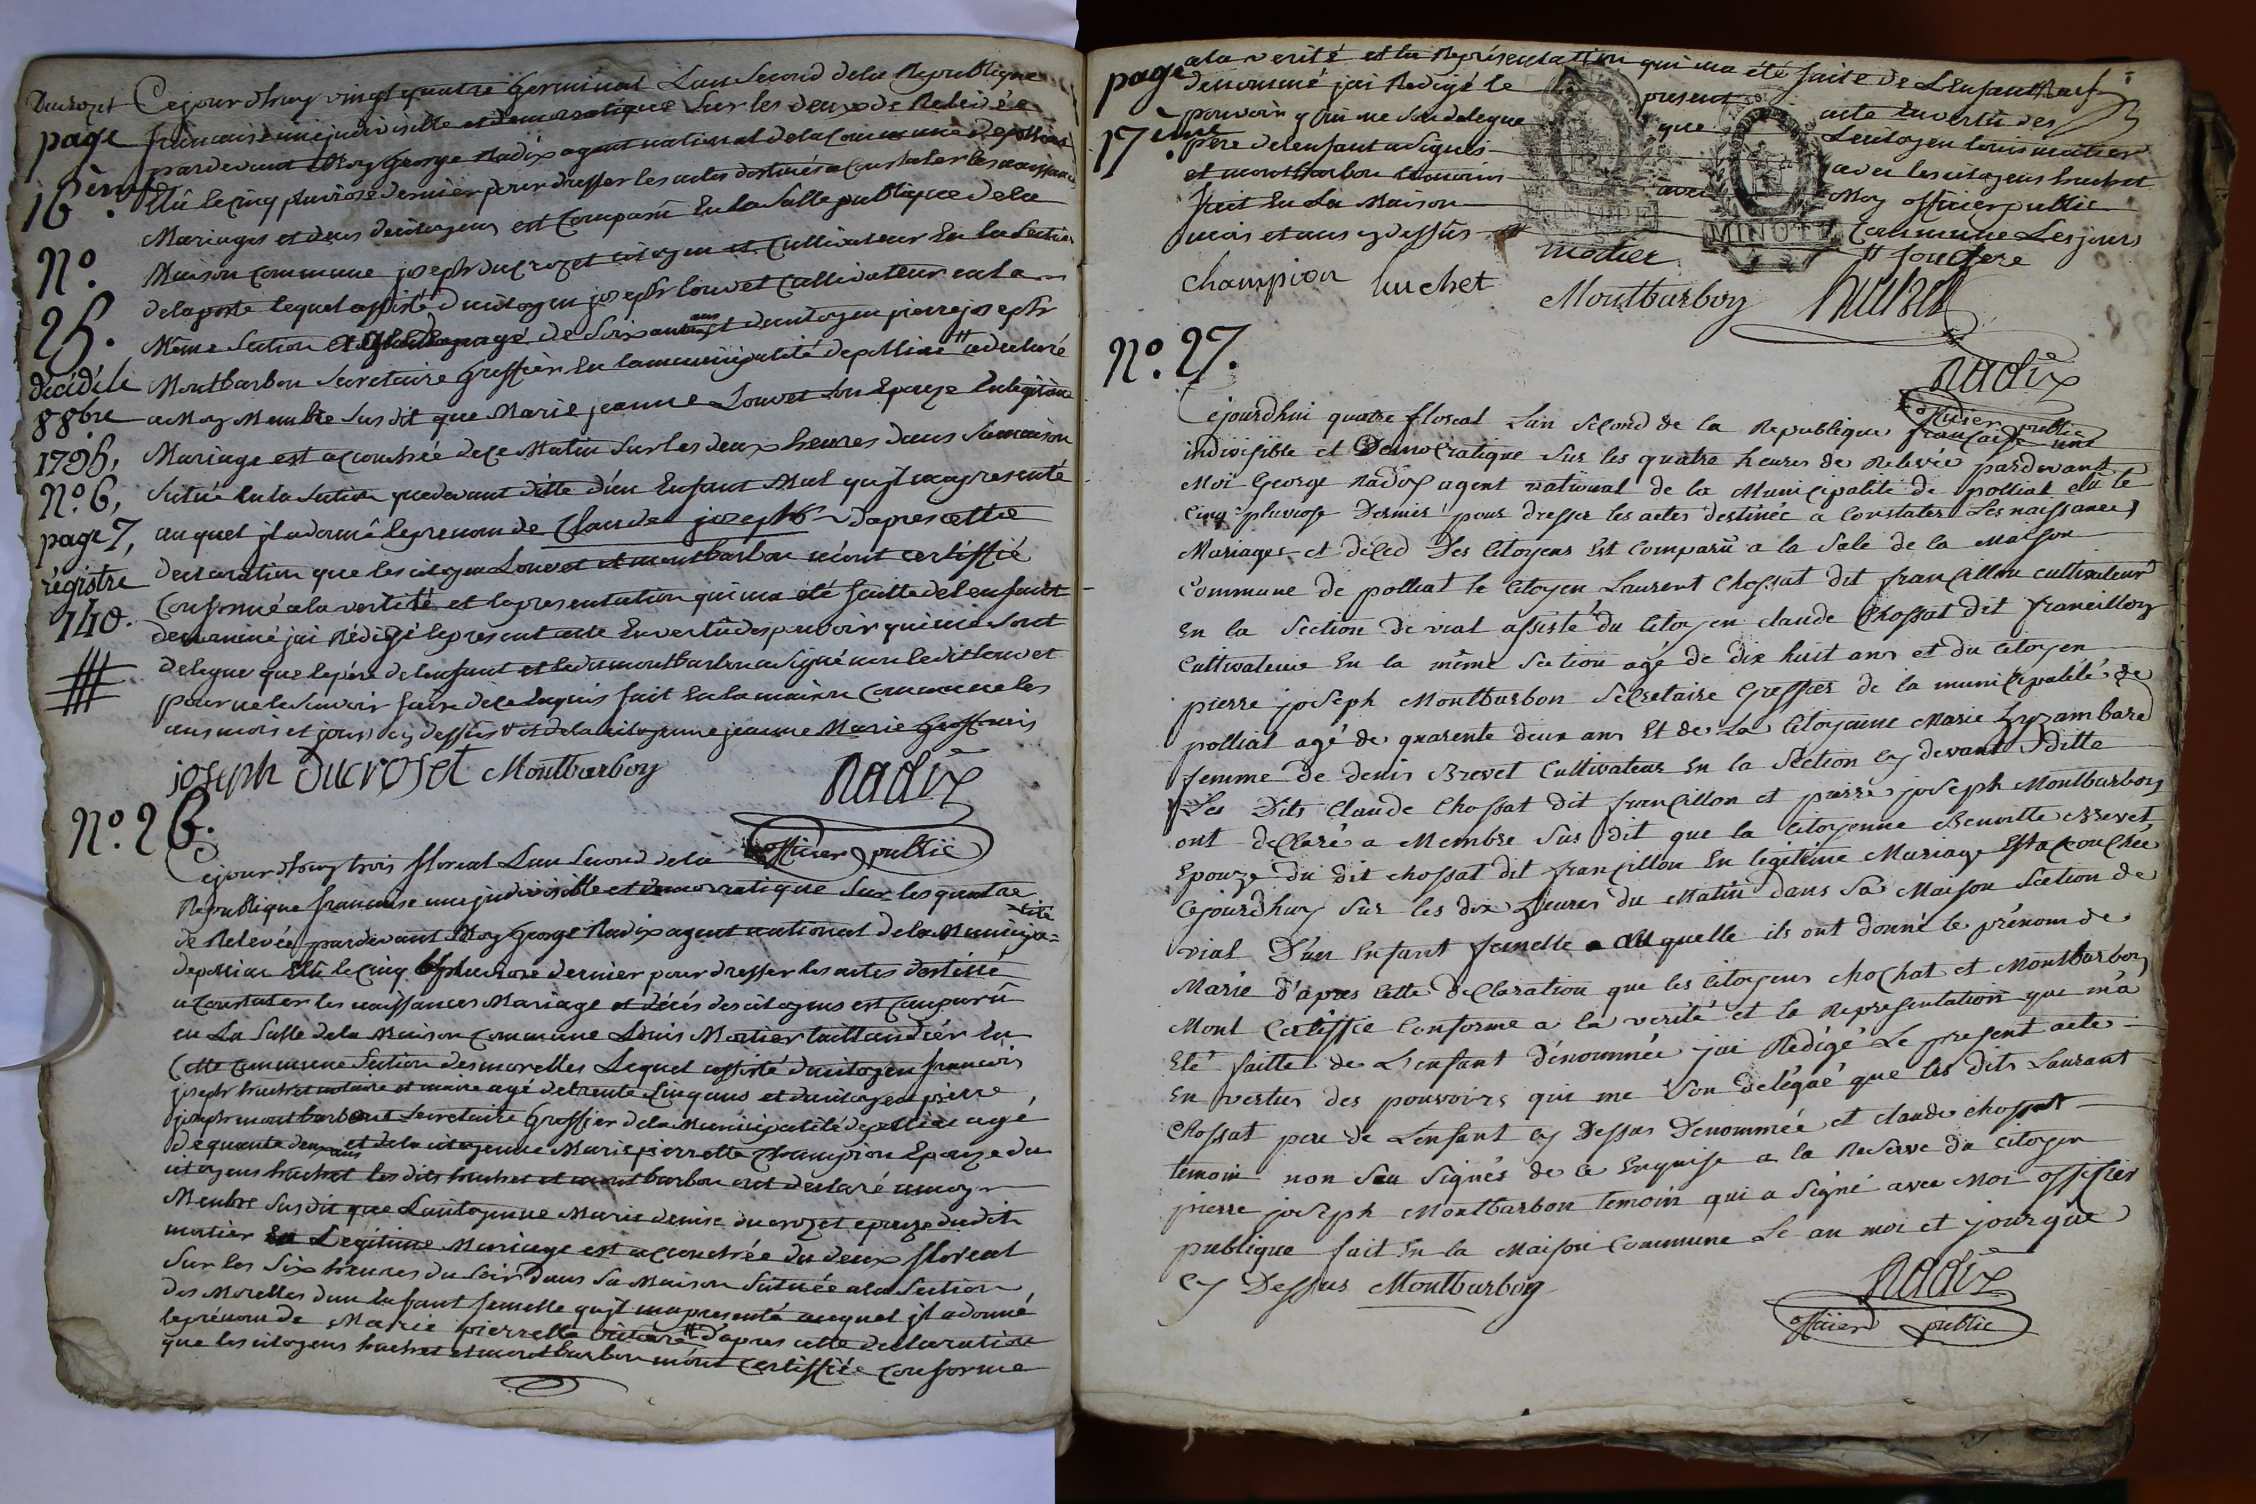 Ducrozet
page
16ème.
No.
25.
décédé le
8 8bre
1795,
No. 6,
page 7,
régistre
140.
Cejourdhuy vingt quatre Germinal Lan Second dela Republique
francaise une jndivisible et democratique Sur les deux de Relevée
pardevant Moy George Nadix agent national dela Commune de polliat
Elû le cinq pluviose dernier pour dresser les actes destinés a Constater les naissances
Mariages et deces decitoyens est Comparû En la Salle publique dela
Maison Commune joseph ducrozet citoyen et Cultivateur En la Section
dela poste lequel assisté du citoyen joseph Louvet Cultivateur en la
Même Section agé de Soixante ans et du citoyen pierre joseph
Montbarbon Secretaire Greffier En la municipalité depolliat # a declaré
a Moy Membre Susdit que Marie jeanne Louvet Son Epouze En legitime
Mariage est accouchée dece Matin Sur les deux heures dans Sa maison
Scituée En la Section quedevant ditte d'un Enfant Mal qu'jl ma presenté
au quel jl a donné le prenom de Claude joseph d'apres cette
declaration que les citoyens Louvet et montbarbon m'ont certiffié
Conforme a la verité et la presentation qui ma été faitte del enfant
denommé jai Rédigé le present acte En vertu des pouvoir qui me Sont
delegue que le pére de l enfant et le dit montbarbon a Signé non le dit louvet
pour ne le Scavoir faire de ce Enquis fait En la maison Commune les
ans mois et jours cy dessus # et dela citoyenne jeanne Marie
joseph Ducroset Montbarbon
Nadix
officier public
No. 26.
Cejourdhuy trois floreal Lan Second dela
Republique francaise une jndivisible et democratique Sur les quatre
de Relevée pardevant Moy George Nadix agent national dela Municipa=
=lité
depolliat Elû le cinq pluviose dernier pour dresser les actes destiné
a Constater les naissances Mariage et décès des citoyens est Comparû
en La Salle dela Maison Commune Louis Mortier taillandier En
Cette Commune Section des morelles Lequel assisté ducitoyen francois
joseph huchet notaire et maire agé de trente Cinq ans et du citoyen pierre
joseph montbarbon Secretaire Greffier dela Municipalité de polliat agé
de quarante deux ans et dela citoyenne Marie pierrette Champion Epouze du
citoyens huchet les dits huchet et montbarbon ont declaré a moy
Membre Susdit que La citoyenne Marie denise ducrozet epouze dudit
mortier En Legitime Mariage est accouchée du deux floreal
Sur les Six heures du Soir dans Sa Maison Scituée a la Section
des Morelles dun Enfant femelle qu'jl ma presenté auquel jl a donné
le prénom de Marie pierrette victoire # d'apres cette declaration
que les citoyens huchet et montbarbon m'ont certiffiée conforme
page
17ème.
a la verité et la Représentation qui ma été faite de L'enfant
denommé jai Redigé le present acte En vertu des
pouvoir qui me Son delegue que Le citoyen Louis mortier
père del enfant a Signés avec les citoyens huchet
et montbarbon temoins avec Moy officier public
fait En La Maison Commune Les jours
mois et ans cy dessus
MINUTE
MINUTE
champion huchet
mortier
Montbarbon
huchet
Nadix
officier public
No. 27.
Cejourdhui quatre floreal Lan Second de la Republique francaise une
indivisible et Democratique Sur les quatre heures de Relevée pardevant
Moi George Nadix agent national de la Municipalité de polliat elû le
cinq pluviose Dernier pour dresser les actes destinée a Constater Les naissances
Mariages et déced Des Citoyens Est Comparû a la Sale de la Maison
Commune de polliat le Citoyen Laurent Chossat dit francillon cultivateur
En la Section de vial assisté du Citoyen claude Chossat dit francillon
Cultivateur En la même Section agé de dix huit ans et du Citoyen
pierre joseph Montbarbon Secretaire Greffier de la municipalité de
polliat agé de quarente deux ans Et de La Citoyenne Marie
femme de denis Brevet Cultivateur En la Section cy devant Ditte
Les Dits Claude Chossat dit francillon et pierre joseph Montbarbon
ont declaré a Membre Sus dit que la Citoyenne Benoitte Brevet
Epouze du dit chossat dit francillon En legitime Mariage Est accouchée
Cejourdhuy Sur les dix heures du Matin dans Sa Maison Section de
vial D'un Enfant femelle a quelle ils ont donné le prénom de
Marie d'apres Cette Declaration que les Citoyens chochat et Montbarbon
Mont Certiffié Conforme a la verité et la Representation que m'a
Eté faitte de L'enfant dénommée jai Rédigé Le present acte
En vertus des pouvoirs qui me Son Delégué que les dits Laurant
Chossat pere de L'enfant cy Dessus Denommée et claude chossat
temoin non Seu Signés de ce Enquise a la Reserve du Citoyen
pierre joseph Montbarbon temoin qui a Signé avec Moi officier
publique fait En la Maison Commune Le an moi et jour que
cy Dessus Montbarbon
Nadix
officier public